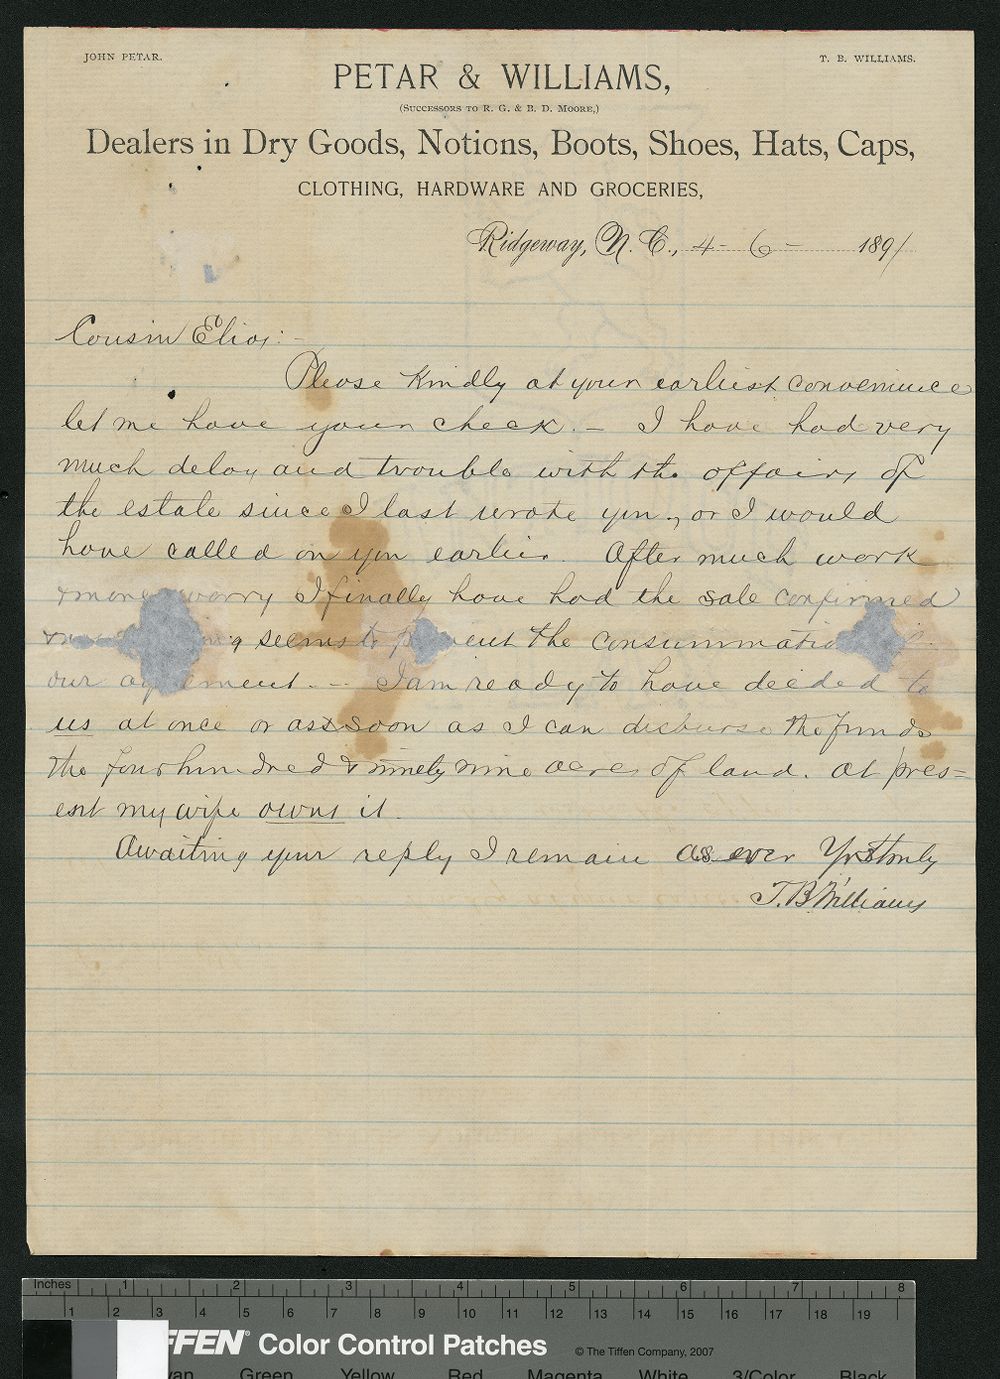 JOHN PETAR.
T. B. WILLIAMS.
PETAR & WILLIAMS,
(SUCCESSORS TO R. G. & B. D. MOORE,)
Dealers in Dry Goods, Notions, Boots, Shoes, Hats, Caps,
CLOTHING, HARDWARE AND GROCERIES,
Ridgeway, N. C., 4 - 6 - 1891
Cousin Elias:-
Please kindly at your earliest convenience
let me have your check. - I have had very
much delay and trouble with the affairs of
the estate since I last wrote you, or I would
have called on you earlier. After much work
& worry I finally have had the sale confirmed
seems to the
our agreement. - I am ready to have deeded to
us at once or as soon as I can disburse the funds
the four hundred & ninety nine acres of land. At pres=
ent my wife owns it.
Awaiting your reply I remain as ever Yrs truly
T. B. Williams
Inches 1 2 3 4 5 6 7 8
1 2 3 4 5 6 7 8 9 10 11 12 13 14 15 16 17 18 19
FFEN® Color Control Patches © The Tiffen Company, 2007
yan Green Yellow Red Magenta White 3/Color Black